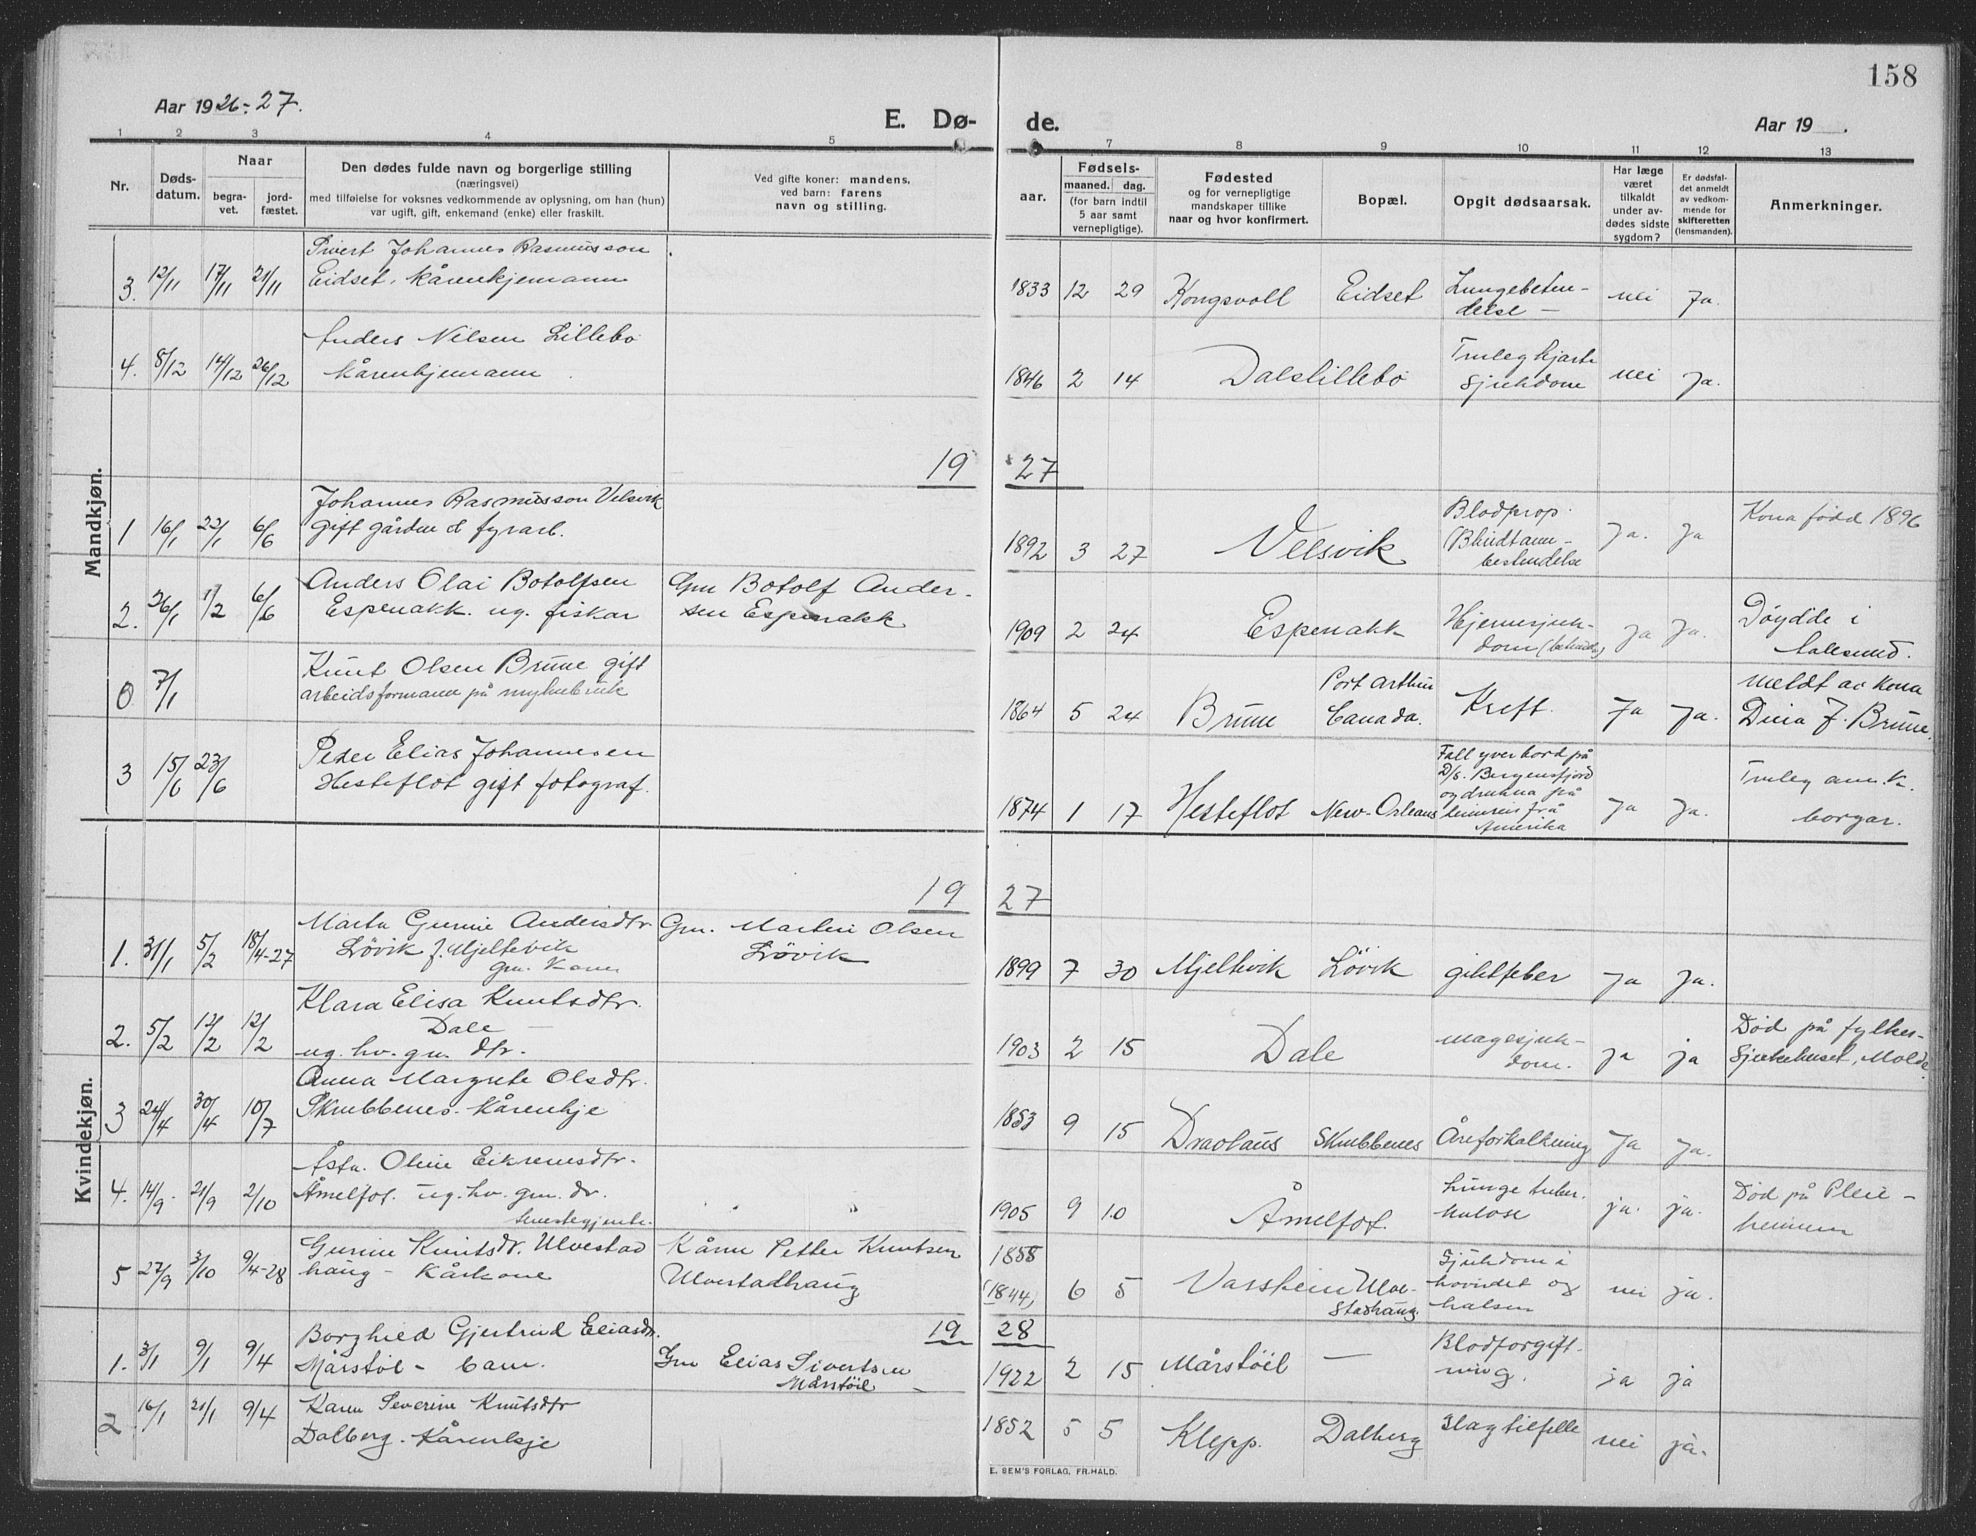 158
Aar 1926-27.
E. Dø-
de.
Aar 19 .
1 2 3 4 5 7 8 9 10 11 12 13
Nr.
Døds-
datum.
Naar
begra-
vet.
jord-
fæstet.
Den dødes fulde navn og borgerlige stilling
(næringsvei)
med tilføielse for voksnes vedkommende av oplysning, om han (hun)
var ugift, gift, enkemand (enke) eller fraskilt.
Ved gifte koner: mandens,
ved barn: farens
navn og stilling.
aar.
Fødsels-
maaned. dag.
(for barn indtil
5 aar samt
vernepligtige).
Fødested
og for vernepligtige
mandskaper tillike
naar og hvor konfirmert.
Bopæl.
Opgit dødsaarsak.
Har læge
været
tilkaldt
under av-
dødes sidste
sygdom?
Er dødsfal-
det anmeldt
av vedkom-
mende for
skifteretten
(lensmanden).
Anmerkninger.
Mandkjøn.
Sivert Johannes Rasmusson
3. 12/11 17/11 21/11 Eidset, kårenkjemann 1833 12 29 Kongsvoll Eidset Lungebeten-
delse - nei Ja.
Anders Nilsen Lillebø
4. 8/12 14/12 26/12 kårenkjemann 1846 2 14 Dalslillebø Truleg hjarte
sjukdom nei Ja.
19 27
Johannes Rasmusson Velsvik
1 16/1 22/1 6/6 gift gårdm. & fyrarb. 1892 3 27 Velsvik Blodprop.
(Blindtarm-
betendelse Ja. Ja Kona fødd 1896
Anders Olai Botolfsen Gm Botolf Ander-
2. 26/1 1/2 6/6 Espenakk. ug. fiskar sen Espenakk 1909 2 24 Espenakk Hjernesjuk-
dom ja Ja. Døydde i
Aalesund.
Knut Olsen Brune gift
0 7/1 arbeidsformann på 1864 5 24 Brune Port Arthur
Canada. Kreft. Ja Ja. meldt av kona
Dina J. Brune.
Peder Elias Johannesen
3 15/6 23/6 Hesteflot gift fotograf. 1874 1 17 Hesteflot New-Orleans Fall yver bord på
D/s. Bergensfjord
og drukna på
heimreis frå
Amerika Ja Ja. Truleg am.k.
borgar.
Kvindekjøn.
19 27
Marta Gurine Andersdtr Gm. Martin Olsen
1. 31/1 5/2 18/4-27 Løvik f. Mjeltevik Løvik
gm. Kone 1899 7 30 Mjeltevik Løvik giktfeber Ja Ja.
Klara Elisa Knutsdtr.
2. 5/2 12/2 12/2 Dale -
ug. hv. gm. dtr. 1903 2 15 Dale magesjuk-
dom. ja ja Død på fylkes-
sjukehuset, Molde.
Anna Margrete Olsdtr.
3 24/4 30/4 10/7 Skubbenes. kårenkje 1853 9 15 Draolaus Skubbenes Åreforkalkning Ja Ja.
Åsta. Oline Eikremsdtr.
4. 14/9 21/9 2/10 Åmelfot. ug. hv. gm. dr.
tenestegjente. " " 1905 9 10 Åmelfot. Lunge tuber.
kulose ja. ja. Død på Pleie-
heimen
Gurine Knutsdr. Ulvestad Kårm Petter Knutsen
5 27/9 3/10 9/4-28 haug - Kårkone Ulvestadhaug 1858
(1844) 6 5 Varskein Ulve-
stadhaug. Sjukdom i
hovudet og
halsen nei ja.
19 28
Borghild Gjertrud Eliasdr.
1. 3/1 9/1 9/4 Mårstøl - barn. Gm Elias Sivertsen
Mårstøil 1922 2 15 Mårstøil - Blodforgift-
ning. ja ja
Karen Severine Knutsdtr
2 16/1 21/1 9/4 Dalberg. Kårenkje 1852 5 5 Klepp. Dalberg Slagtilfelle nei ja.
E. SEM'S FORLAG, FR.HALD.